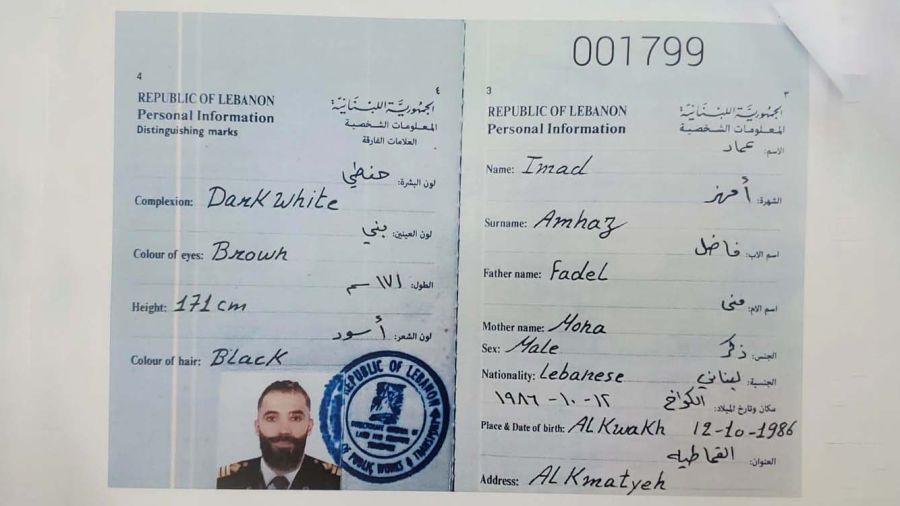 4
٤
REPUBLIC OF LEBANON
الجمهوريّة اللبنانيّة
Personal Information
المعلومات الشخصية
Distinguishing marks
العلامات الفارقة
لون البشرة: حنطي
Complexion: Dark White
لون العينين: بني
Colour of eyes: Brown
الطول: ١٧١ سم
Height: 171 cm
لون الشعر: أسود
Colour of hair: Black
REPUBLIC OF LEBANON
OF PUBLIC WORKS & TRANSPORT
001799
3
٣
REPUBLIC OF LEBANON
الجمهوريّة اللبنانيّة
Personal Information
المعلومات الشخصية
الاسم: عماد
Name: Imad
الشهرة: أمهز
Surname: Amhaz
اسم الاب: فاضل
Father name: Fadel
اسم الام: منى
Mother name: Mona
الجنس: ذكر
Sex: Male
الجنسية: لبناني
Nationality: Lebanese
مكان وتارخ الميلاد: الكواخ ١٢-١٠-١٩٨٦
Place & Date of birth: AL Kwakh 12-10-1986
العنوان: القماطيه
Address: AL Kmatyeh